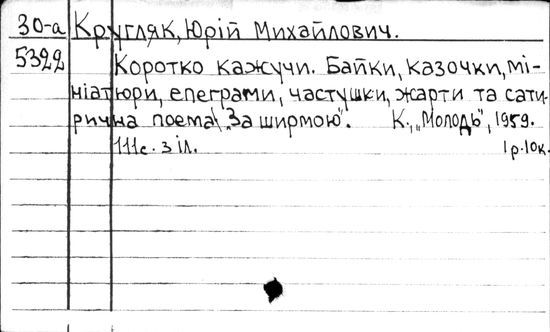 30-а Кругляк, Юрій Михайлович.
5322 Коротко кажучи. Байки, казочки, мі-
ніатюри, епеграми, частушки, жарти та сати-
рична поема „За ширмою”. К., „Молодь”, 1959.
111с. з іл. 1р.10к.